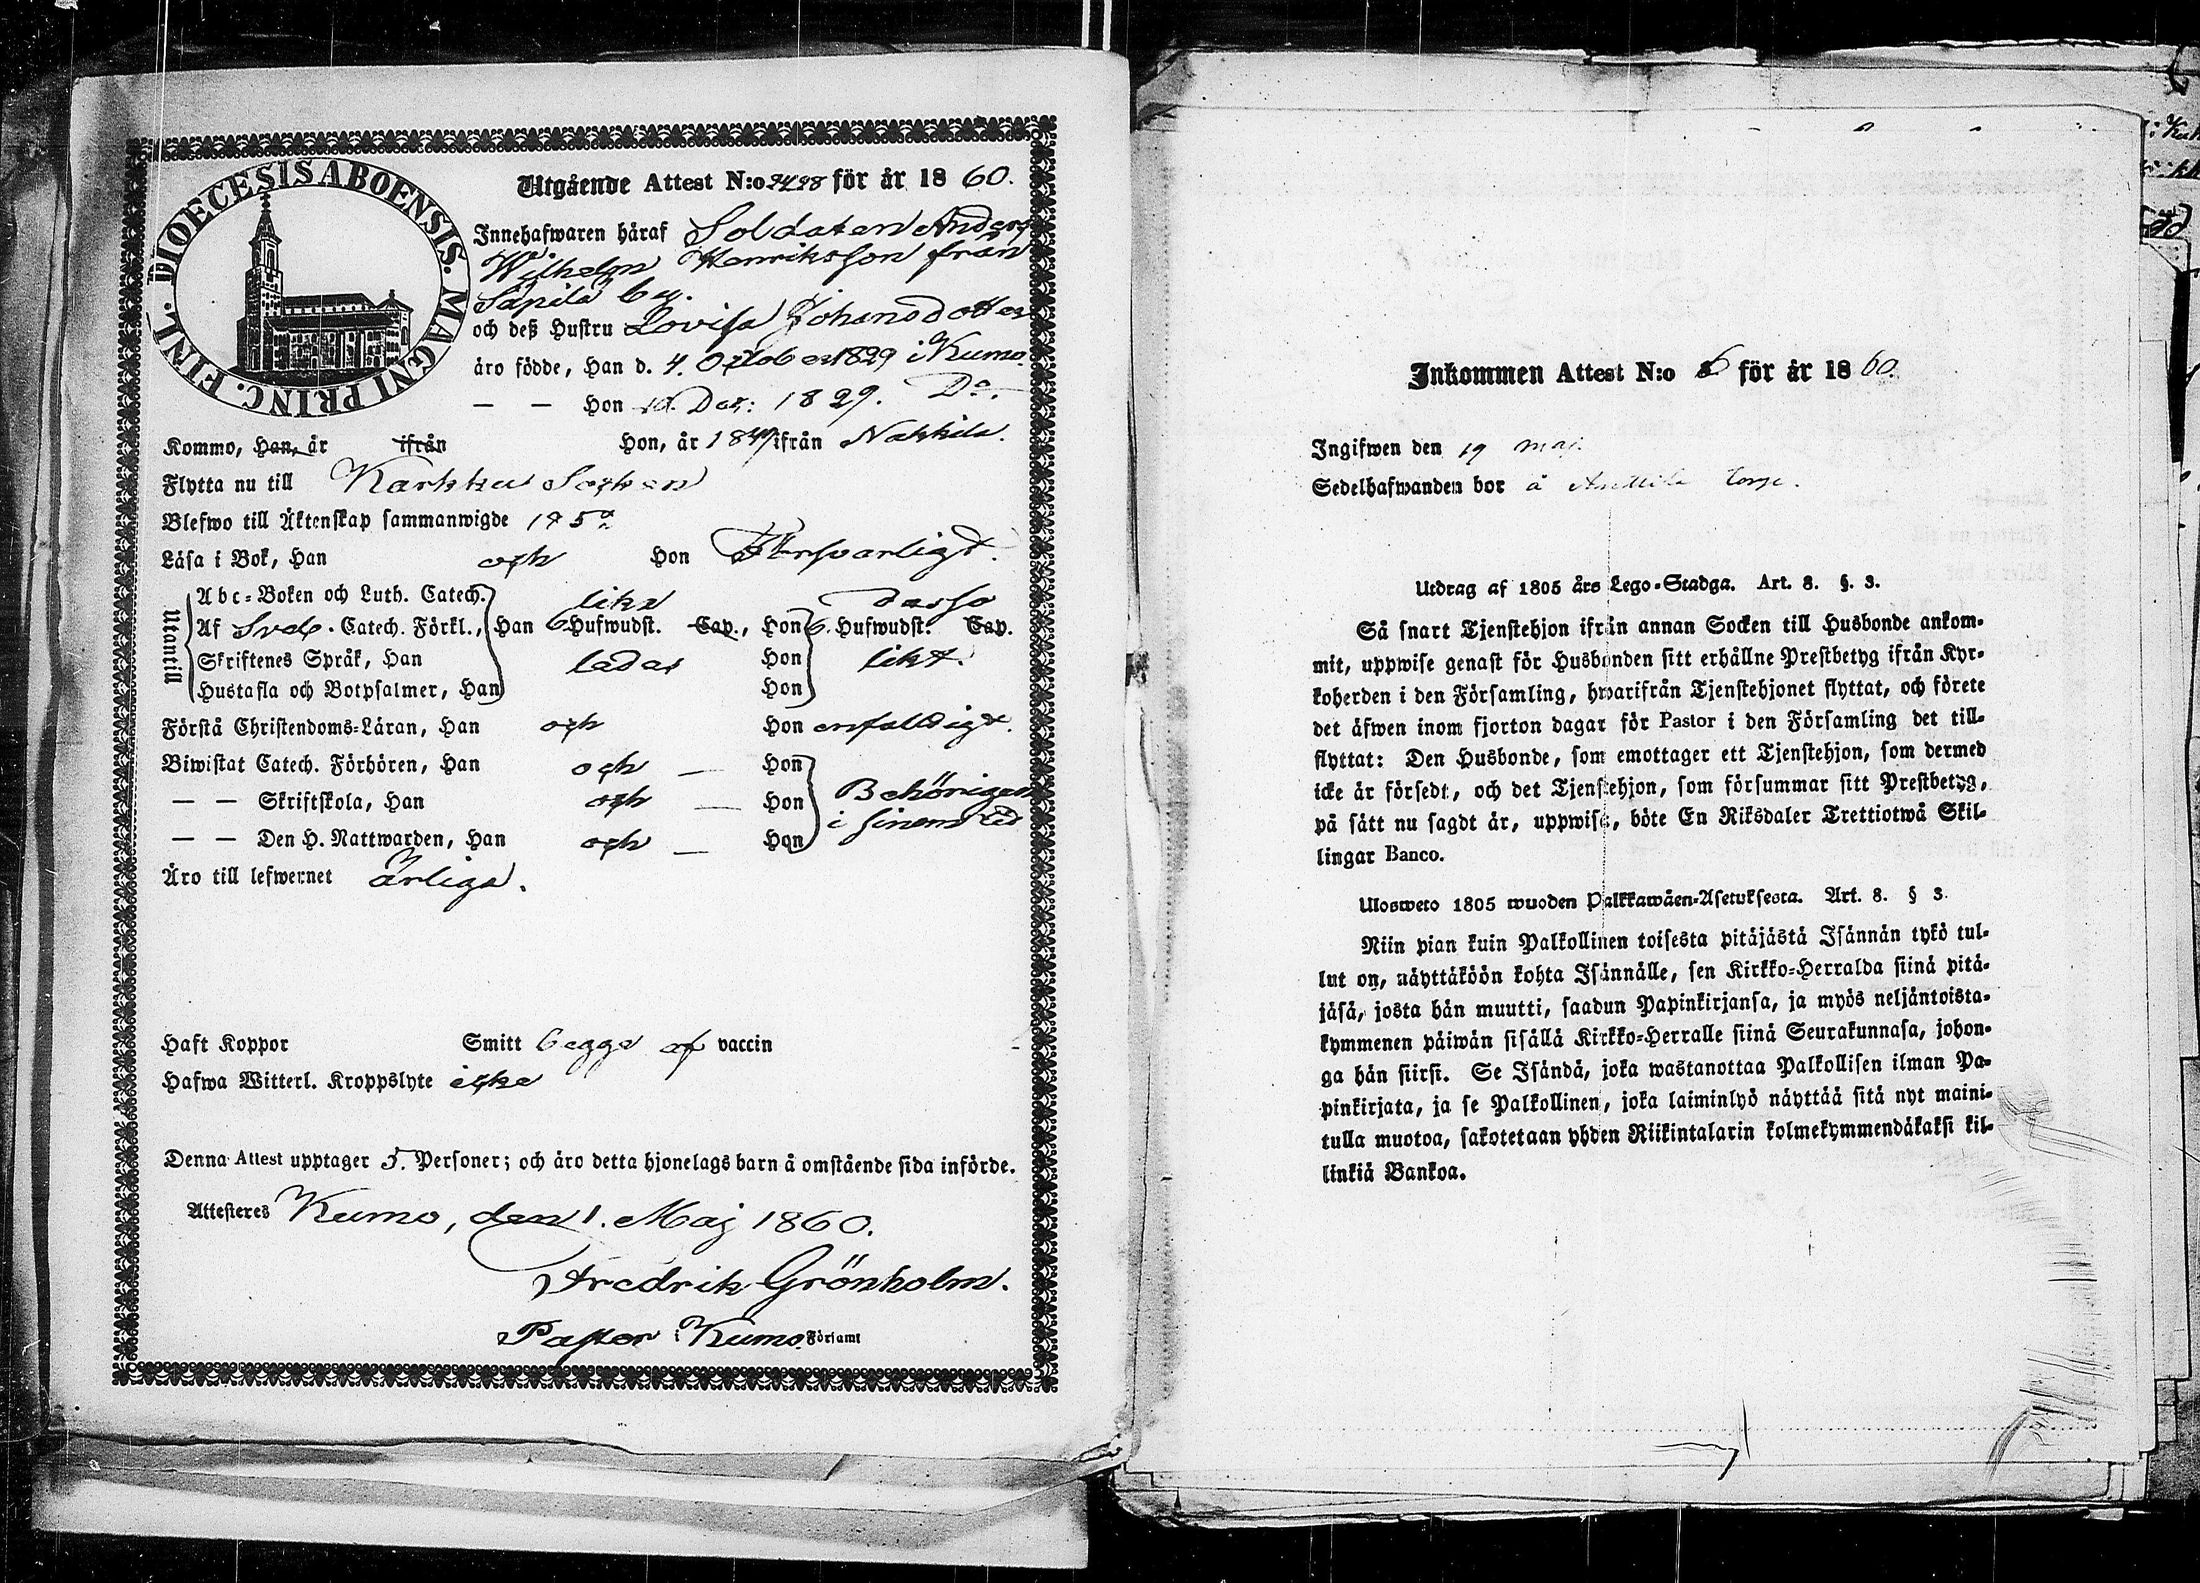 DIOECESIS ABOENSIS. MAGNI PRINC. FINL.
Utgående Attest N:o för år 18 60.
Innehafwaren häraf Soldaten Anders
Wilhelm Henriksson från
Säpilä by.
och deß Hustru Lovisa Johansdotter
äro födde, Han d. 4. October 1829 i Kumo.
— — Hon Dec: 1829. Do.
Kommo, Han, år ifrån Hon, år ifrån Nakkila.
Flytta nu till Karkku Socken
Blefwo till Äktenskap sammanwigde
Läsa i Bok, Han och Hon Försvarligt.
Utantill
Abc-Boken och Luth. Catech. lika dasso
Af Sveb. Catech. Förkl., Han 6 Hufwudst. Cap., Hon 6. Hufwudst. Cap.
Skriftenes Språk, Han ledas Hon likt.
Hustafla och Botpsalmer, Han Hon
Förstå Christendoms-Läran, Han och Hon enfaldigt.
Biwistat Catech. Förhören, Han och — Hon
— — Skriftskola, Han och — Hon Behörigen
— — Den H. Nattwarden, Han och — Hon i sinom tid
Äro till lefwernet ärliga.
Haft Koppor Smitt begge af vaccin
Hafwa Witterl. Kroppslyte icke
Denna Attest upptager 5. Personer; och äro detta hjonelags barn å omstående sida införde.
Attesteres Kumo, den 1. Maj 1860.
Fredrik Grönholm.
Pastor i Kumo Församl
Inkommen Attest N:o 6 för år 18 60.
Ingifwen den 19 maj.
Sedelhafwanden bor å Anttila torp.
Utdrag af 1805 års Lego-Stadga. Art. 8. §. 3.
Så snart Tjenstehjon ifrån annan Socken till Husbonde ankom-
mit, uppwise genast för Husbonden sitt erhållne Prestbetyg ifrån Kyr-
koherden i den Församling, hwarifrån Tjenstehjonet flyttat, och förete
det äfwen inom fjorton dagar för Pastor i den Församling det till-
flyttat: Den Husbonde, som emottager ett Tjenstehjon, som dermed
icke är försedt, och det Tjenstehjon, som försummar sitt Prestbetyg,
på sätt nu sagdt är, uppwisa, böte En Riksdaler Trettiotwå Skil-
lingar Banco.
Ulosweto 1805 wuoden Palkkawäen-Asetuksesta. Art. 8. § 3.
Niin pian kuin Palkollinen toisesta pitäjästä Isännän tykö tul-
lut on, näyttäköön kohta Isännälle, sen Kirkko-Herralda siinä pitä-
jäsä, josta hän muutti, saadun Papinkirjansa, ja myös neljäntoista-
kymmenen päiwän sisällä Kirkko-Herralle siinä Seurakunnasa, johon-
ga hän siirsi. Se Isändä, joka wastanottaa Palkollisen ilman Pa-
pinkirjata, ja se Palkollinen, joka laiminlyö näyttää sitä nyt maini-
tulla muotoa, sakotetaan yhden Riikintalarin kolmekymmendäkaksi kil-
linkiä Bankoa.